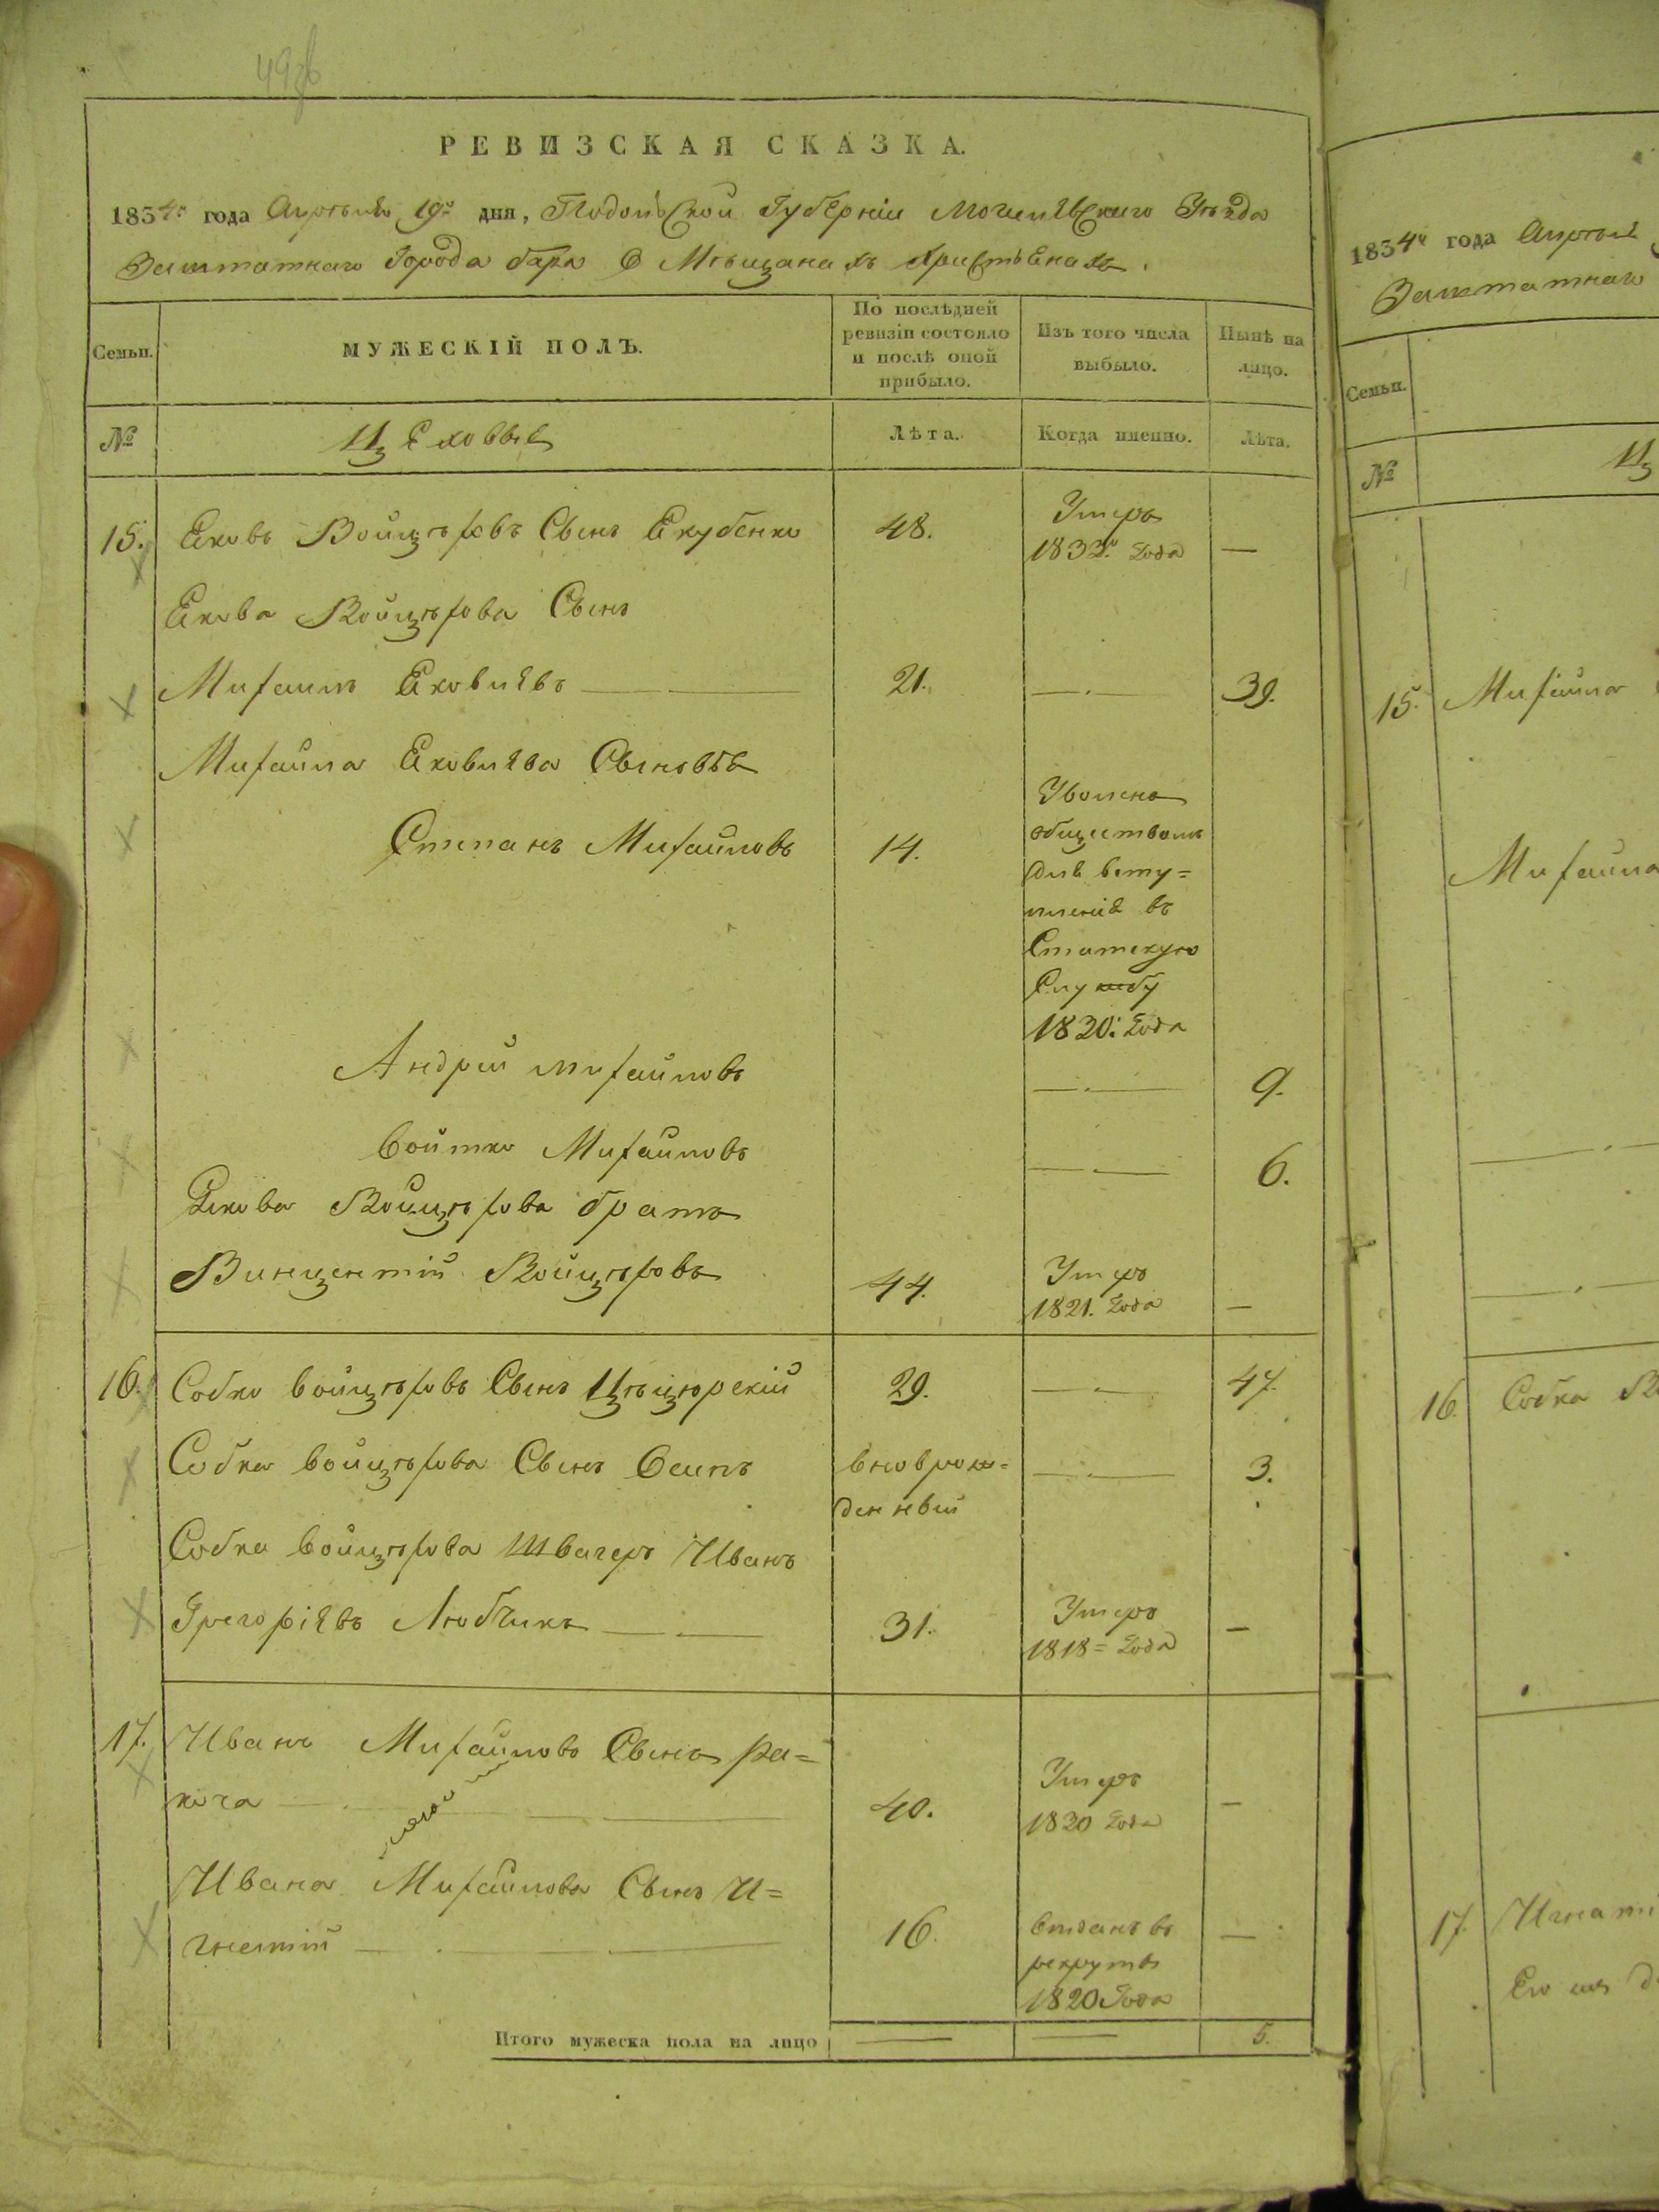 РЕВИЗСКАЯ СКАЗКА.
1834го года Апреля 19го дня, Подольской Губернии Могилевского Уезда
Заштатного Города Бара О Мещанах Христьянах.
Семьи.
МУЖЕСКІЙ ПОЛЪ.
По послѣдней ревизіи состояло и послѣ оной прибыло.
Изъ того числа выбыло.
Нынѣ на лицо.
№
Лѣта.
Когда именно.
Лѣта.
15. Яковъ Войцѣховъ Сынъ Якубенко 48. Умеръ 1832го Года —
Якова Войцѣхова Сынъ
Михаилъ Яковлявъ 21. — 39.
Михайла Яковлява Сыновья
Степанъ Михайловъ 14. Уволенъ
обществомъ
для всту=
пленія въ
Статскую
Службу
1820: Года
Андрей Михайловъ — 9.
Войтко Михайловъ — 6.
Якова Войцѣхова братъ
Винцентій Войцѣховъ 44. Умеръ 1821. Года —
16. Собко Войцѣховъ Сынъ Цѣцюрскій 29. — 47.
Собка Войцѣхова Сынъ Осипъ вноврож= — 3.
денный
Собка Войцѣхова Швагеръ Иванъ
Грегоріявъ Любчикъ 31. Умеръ 1818= Года —
17. Иванъ Михайловъ Сынъ Ра=
коча 40. Умеръ 1820 Года —
Ивана Михайлова Сынъ И=
гнатій 16. Отданъ въ —
рекруты
1820 Года
Итого мужеска пола на лицо — — 5.
1834го года Апреля
Заштатного
Семьи.
№
15. Михайла
Михайла
16. Собка
17. Игнаті
Его